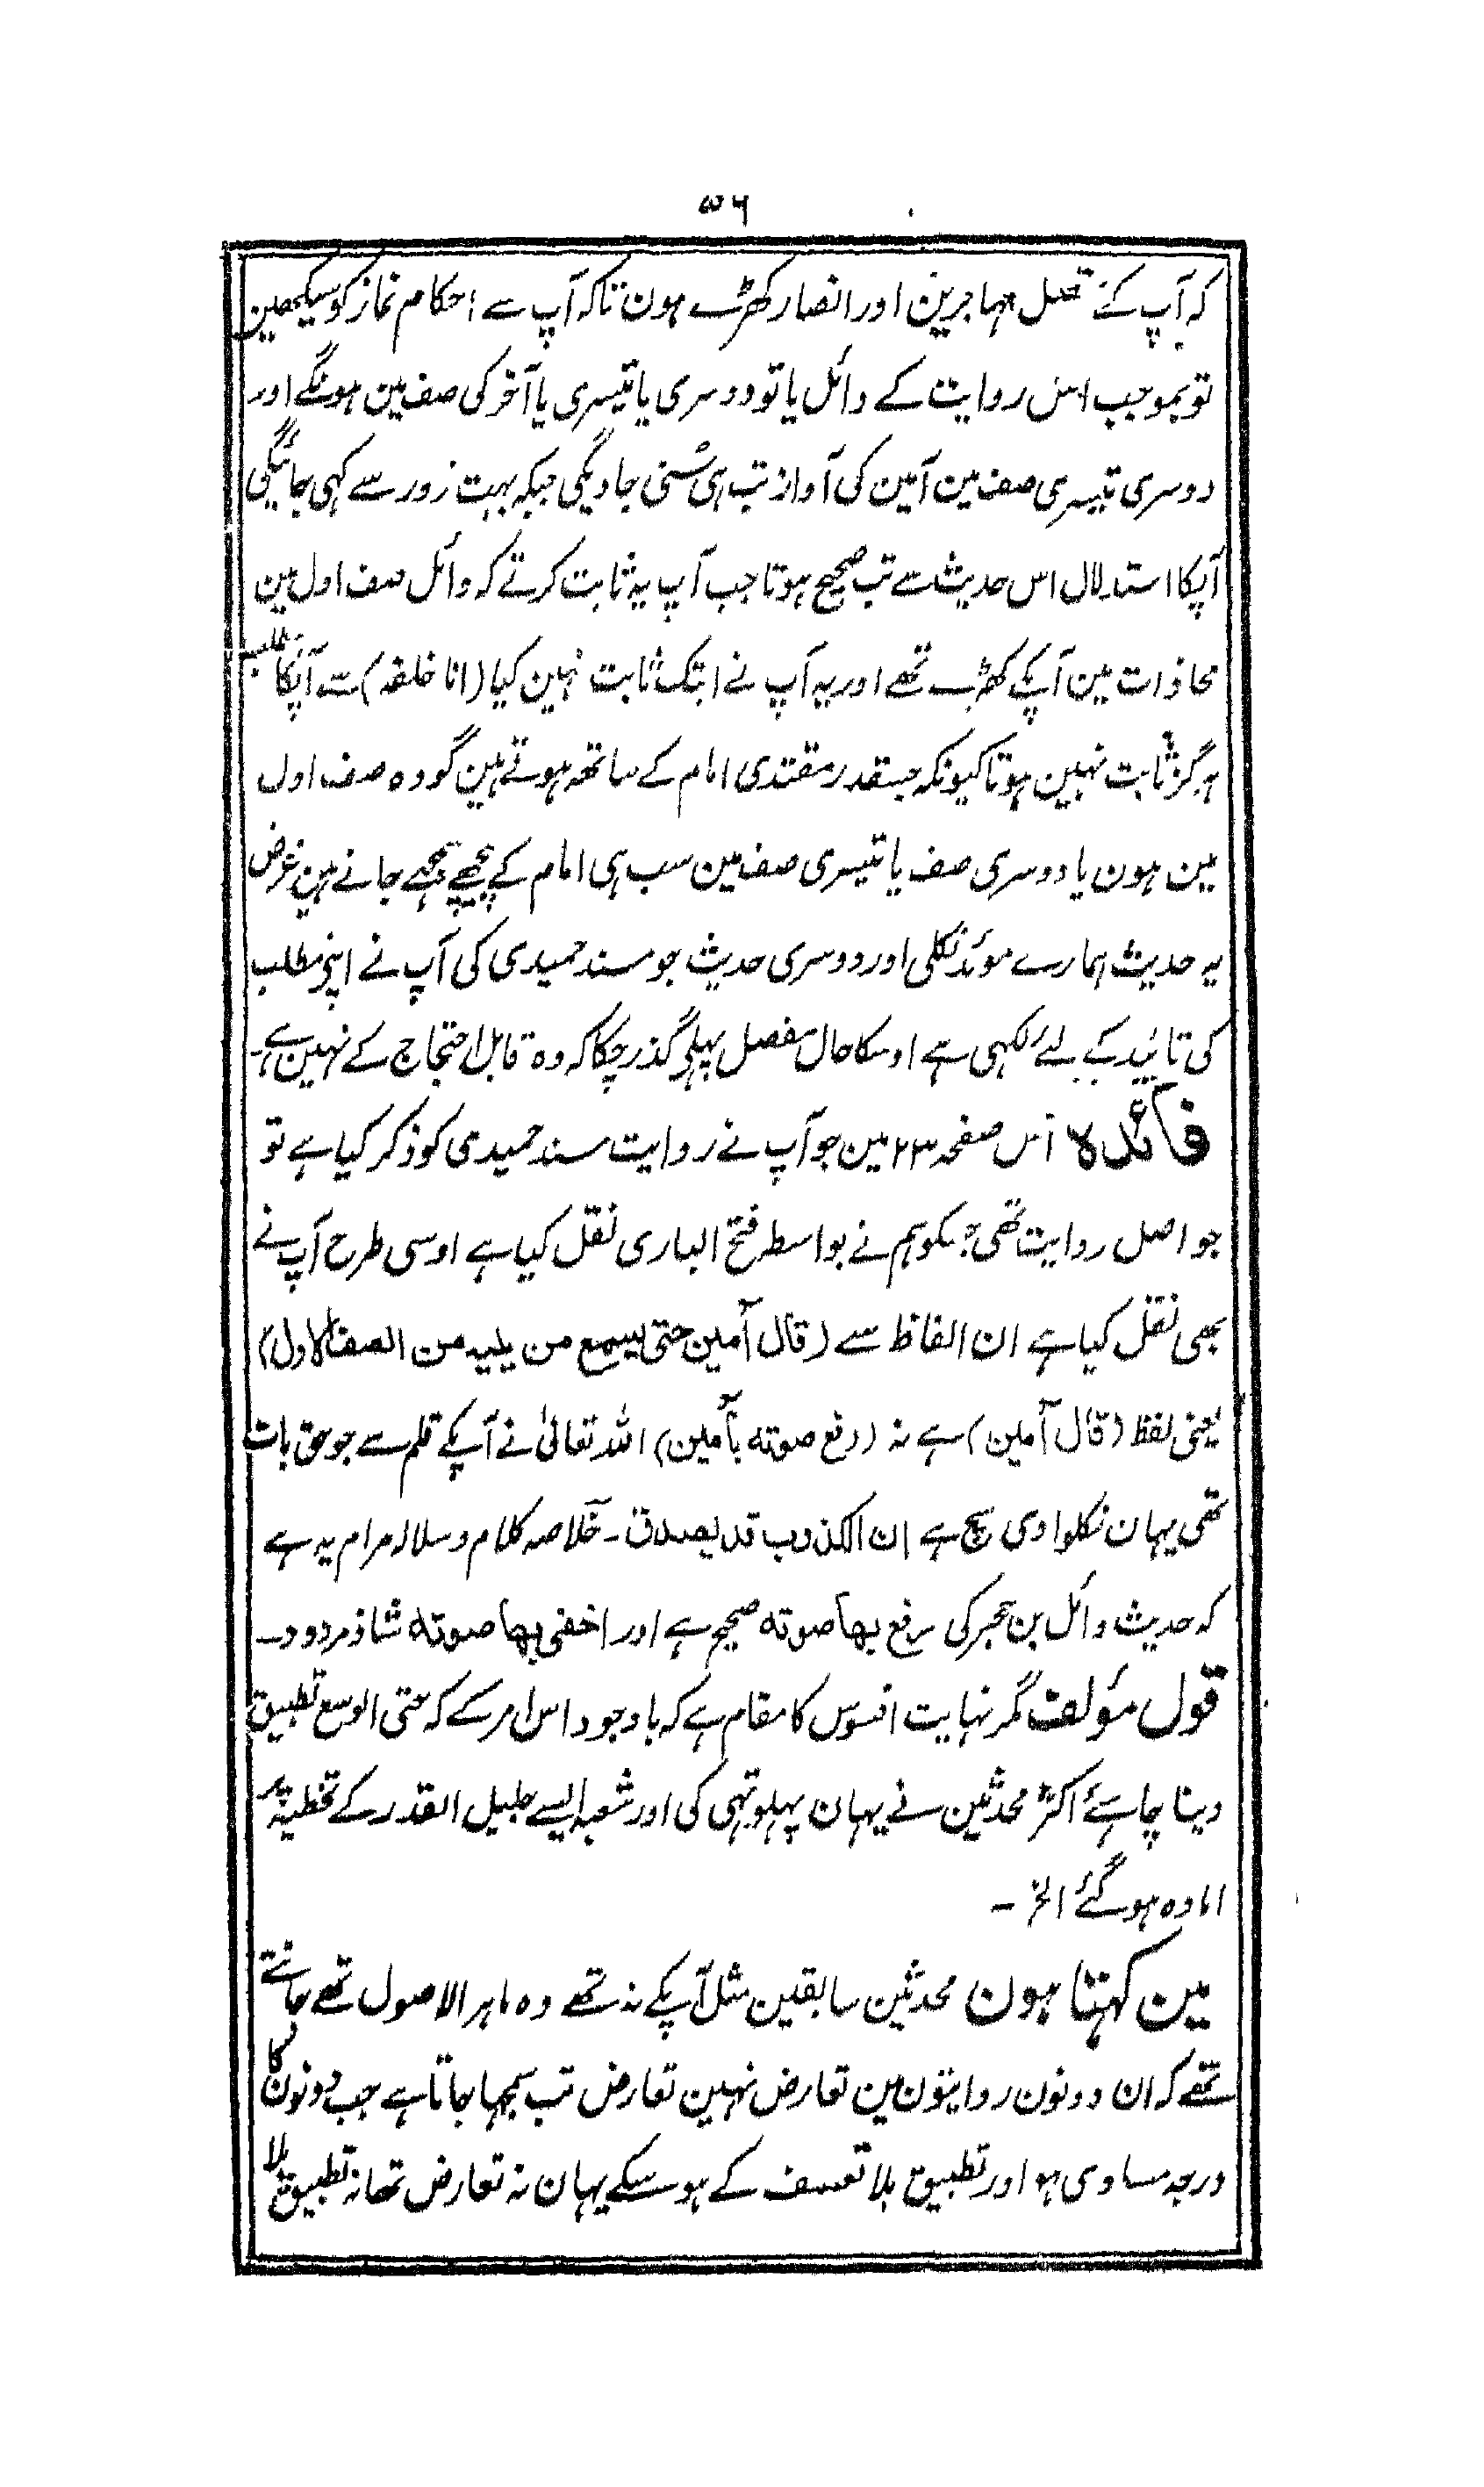 ۵۶
کہ آپ کے متصل مہاجرین اور انصار کھڑے ہون تاکہ آپ سے احکام نماز کو سیکھین
تو بموجب اس روایت کے وائل یا تو دوسری یا تیسری یا آخر کی صف مین ہونگے اور
دوسری تیسری صف مین آمین کی آواز تب ہی سُنی جاویگی جبکہ بہت زور سے کہی جائیگی
آپکا استدلال اس حدیث سے تب صحیح ہوتا جب آپ یہ ثابت کرتے کہ وائل صف اول مین
محاذات مین آپکے کھڑے تھے اور یہ آپ نے ابتک ثابت نہین کیا (انا خلفہ) سے آپکا مطلب
ہرگز ثابت نہین ہوتا کیونکہ جسقدر مقتدی امام کے ساتھ ہوتے ہین گو وہ صف اول
مین ہون یا دوسری صف یا تیسری صف مین سب ہی امام کے پیچھے سمجھے جاتے ہین غرض
یہ حدیث ہمارے موئد نکلی اور دوسری حدیث جو مسند حمیدی کی آپ نے اپنے مطلب
کی تائید کے لئے لکہی ہے اوسکا حال مفصل پہلے گذر چکا کہ وہ قابل احتجاج کے نہین ہے۔
فائدہ اس صفحہ ۲۳ مین جو آپ نے روایت مسند حمیدی کو ذکر کیا ہے تو
جو اصل روایت تھی جسکو ہم نے بواسطہ فتح الباری نقل کیا ہے اوسی طرح آپ نے
بھی نقل کیا ہے ان الفاظ سے (قال آمین حتی یسمع من یلیہ من الصف الاول)
یعنی لفظ (قال آمین) ہے نہ (رفع صوتہ بآمین) اللہ تعالیٰ نے آپکے قلم سے جو حق بات
تھی یہان نکلوا دی سچ ہے ان الکذوب قد یصدق۔ خلاصہ کلام و سلالہ مرام یہ ہے
کہ حدیث وائل بن حجر کی یرفع بھا صوتہ صحیح ہے اور اخفی بھا صوتہ شاذ مردود۔
قول مؤلف مگر نہایت افسوس کا مقام ہے کہ باوجود اس امر کے کہ حتی الوسع تطبیق
دینا چاہئے اکثر محدثین نے یہان پہلو تہی کی اور شعبہ ایسے جلیل القدر کے تخطیہ پر
امادہ ہو گئے الخ ۔
مین کہتا ہون محدثین سابقین مثل آپکے نہ تھے وہ ماہر الاصول تھے جانتے
تھے کہ ان دونون روایتون مین تعارض نہین تعارض تب سمجہا جاتا ہے جب دونون کا
درجہ مساوی ہو اور تطبیق بلا تعسف کے ہو سکے یہان نہ تعارض تھا نہ تطبیق بلا